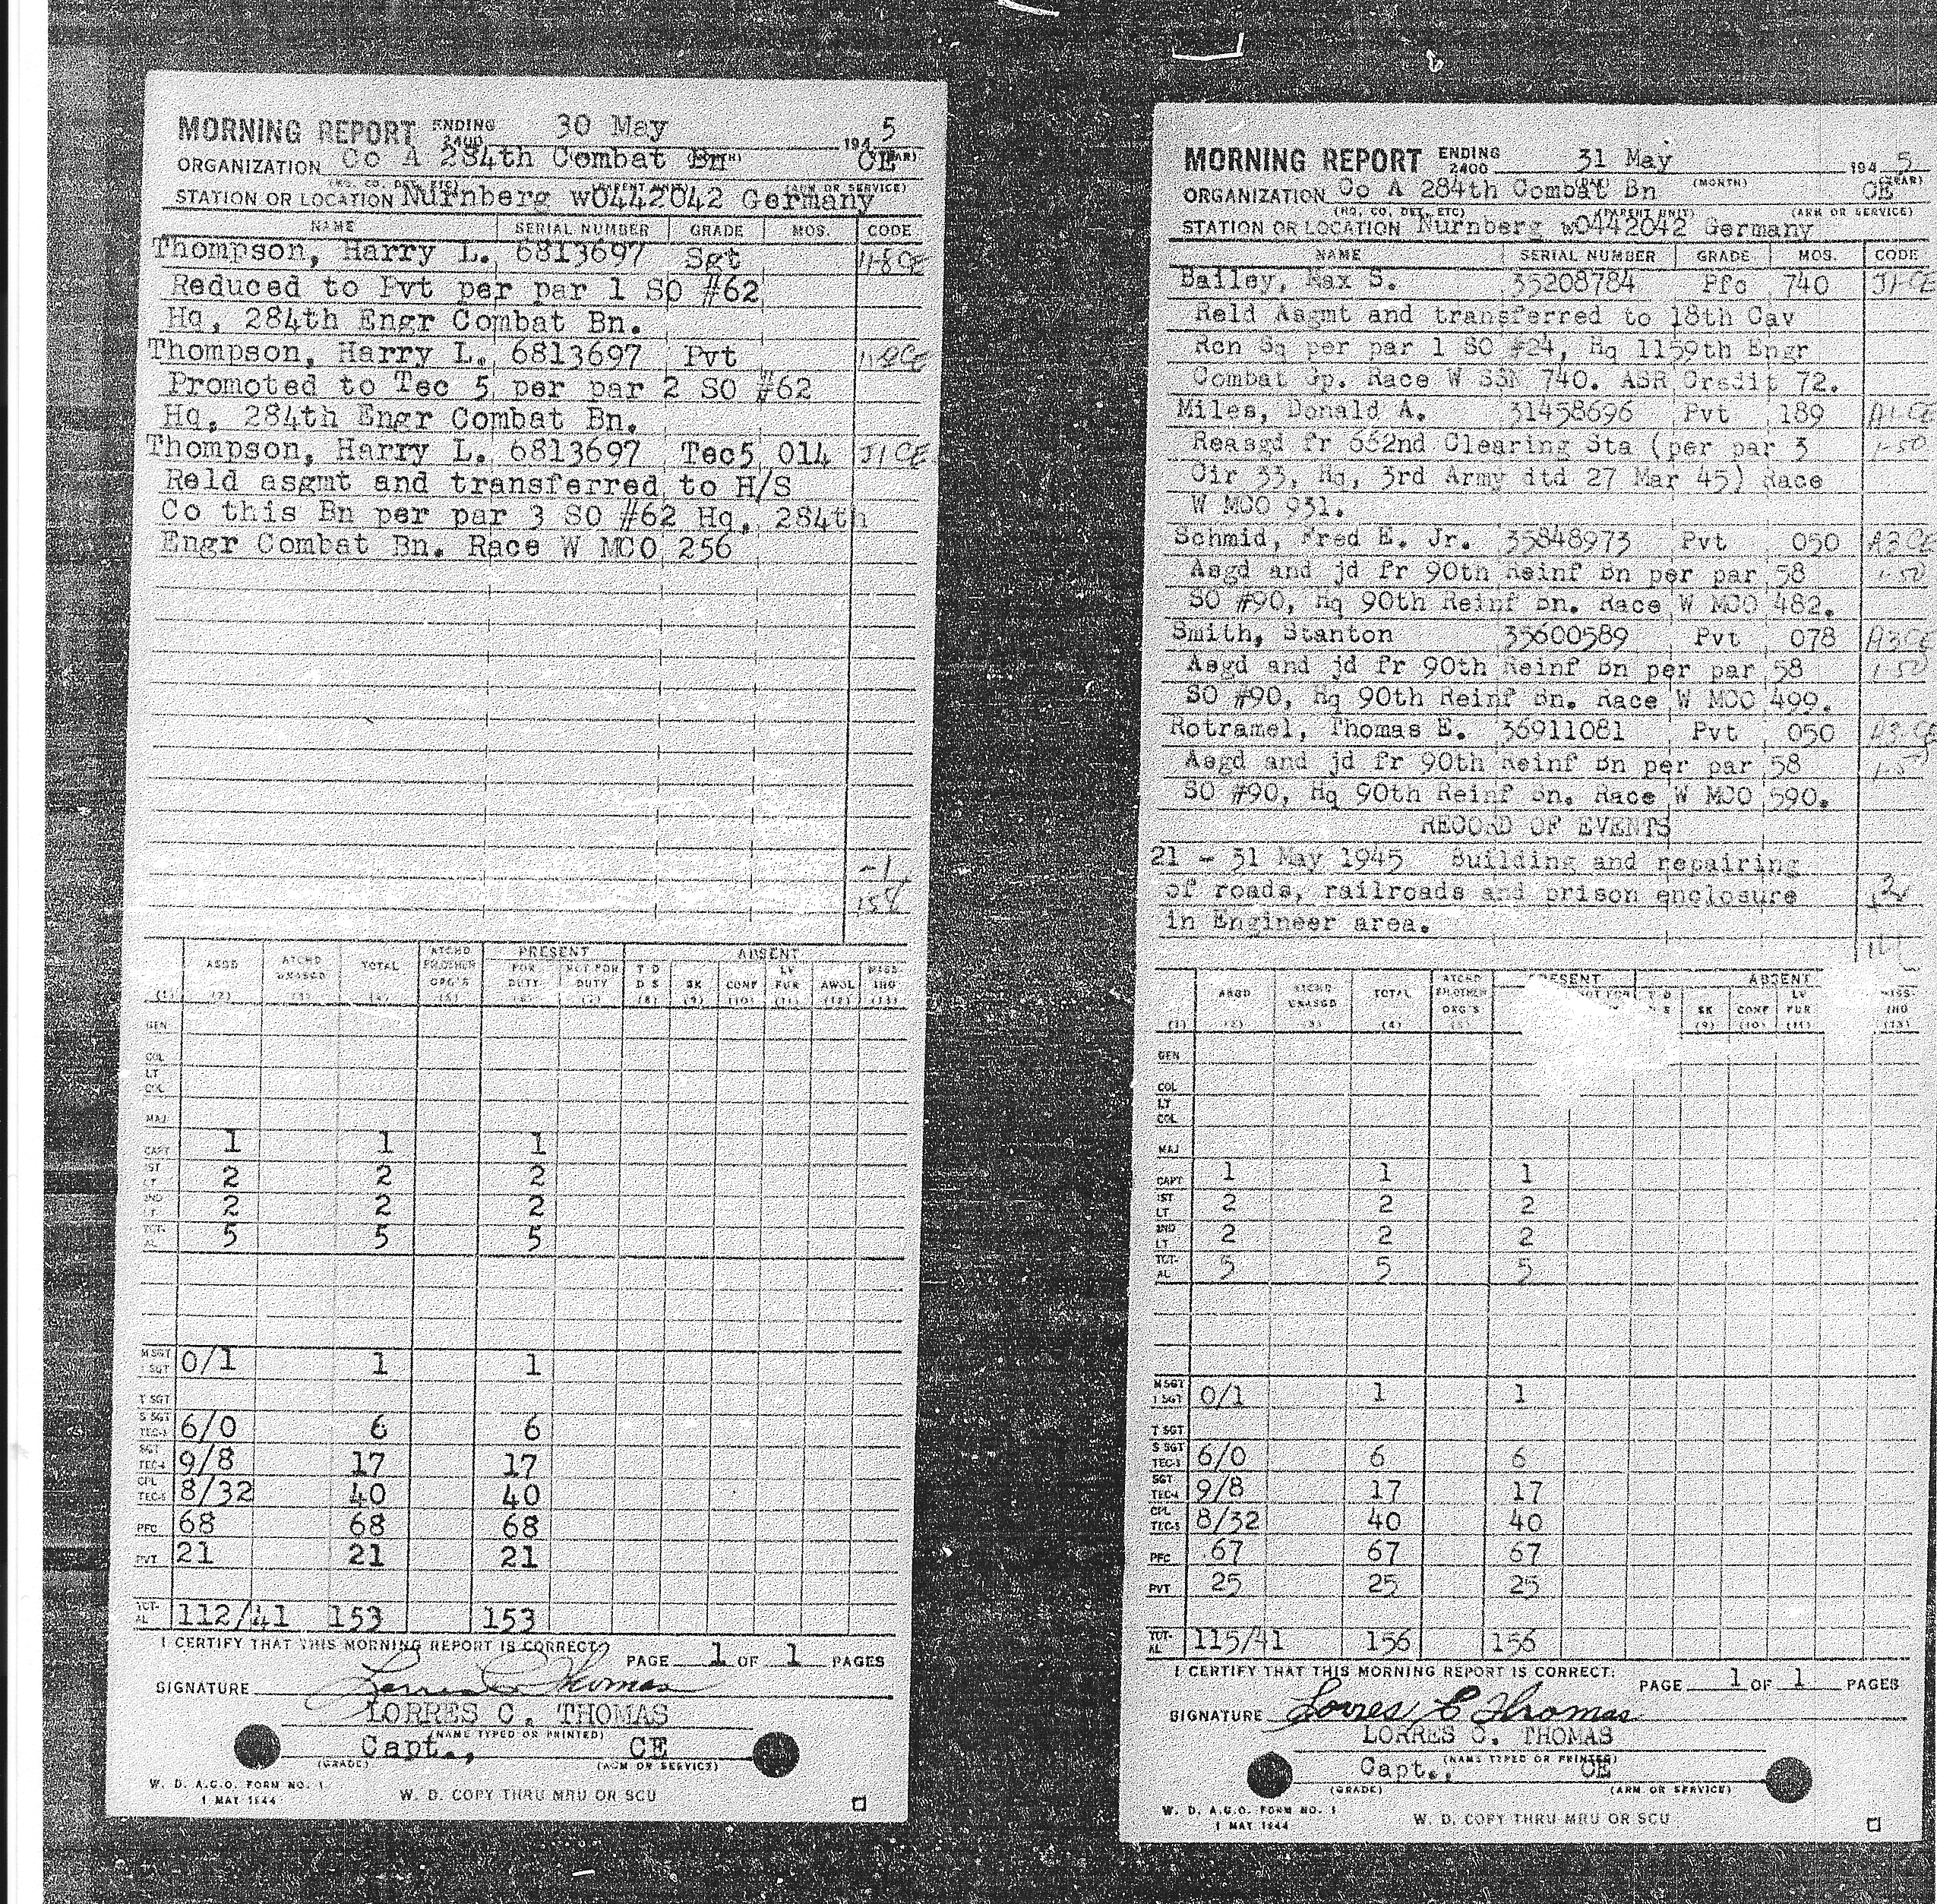 MORNING REPORT ENDING 2400 30 May 1945
ORGANIZATION Co A 284th Combat Bn CE
STATION OR LOCATION Nurnberg wO442042 Germany
NAME SERIAL NUMBER GRADE MOS. CODE
Thompson, Harry L. 6813697 Sgt
Reduced to Pvt per par 1 SO #62
Hq, 284th Engr Combat Bn.
Thompson, Harry L. 6813697 Pvt
Promoted to Tec 5 per par 2 SO #62
Hq, 284th Engr Combat Bn.
Thompson, Harry L. 6813697 Tec5 014 J1 CE
Reld asgmt and transferred to H/S
Co this Bn per par 3 SO #62 Hq, 284th
Engr Combat Bn. Race W MCO 256
-1
PRESENT ABSENT
ASGD ATCHD UNASGD TOTAL ATCHD FR OTHER ORG'S FOR DUTY NOT FOR DUTY T D D S SK CONF LV FUR AWOL MISSING
(1) (2) (3) (4) (5) (6) (7) (8) (9) (10) (11) (12) (13)
GEN
COL
LT COL
MAJ
CAPT 1 1 1
1ST LT 2 2 2
2ND LT 2 2 2
TOTAL 5 5 5
M SGT 1 SGT 0/1 1 1
T SGT
S SGT TEC-3 6/0 6 6
SGT TEC-4 9/8 17 17
CPL TEC-5 8/32 40 40
PFC 68 68 68
PVT 21 21 21
TOTAL 112/41 153 153
I CERTIFY THAT THIS MORNING REPORT IS CORRECT:
PAGE 1 OF 1 PAGES
SIGNATURE Lorres C Thomas
LORRES C. THOMAS
(NAME TYPED OR PRINTED)
Capt., CE
(GRADE) (ARM OR SERVICE)
W. D. A.G.O. FORM NO. 1
1 MAY 1944
W. D. COPY THRU MRU OR SCU
MORNING REPORT ENDING 2400 31 May 1945
(MONTH) (YEAR)
ORGANIZATION Co A 284th Combat Bn CE
(HQ. CO. DET. ETC) (PARENT UNIT) (ARM OR SERVICE)
STATION OR LOCATION Nurnberg wO442042 Germany
NAME SERIAL NUMBER GRADE MOS. CODE
Bailey, Max S. 35208784 Pfc 740 J1-CE
Reld Asgmt and transferred to 18th Cav
Rcn Sq per par 1 SO #24, Hq 1159th Engr
Combat Gp. Race W SSN 740. ASR Credit 72.
Miles, Donald A. 31458696 Pvt 189 A1-CE
Reasgd fr 662nd Clearing Sta (per par 3 1-50
Cir 33, Hq, 3rd Army dtd 27 Mar 45) Race
W MCO 931.
Schmid, Fred E. Jr. 35848973 Pvt 050 A3 CE
Asgd and jd fr 90th Reinf Bn per par 58 1-50
SO #90, Hq 90th Reinf Bn. Race W MCO 482.
Smith, Stanton 35600589 Pvt 078 A3 CE
Asgd and jd fr 90th Reinf Bn per par 58 1-50
SO #90, Hq 90th Reinf Bn. Race W MCO 499.
Rotramel, Thomas E. 36911081 Pvt 050 A3-CE
Asgd and jd fr 90th Reinf Bn per par 58
SO #90, Hq 90th Reinf Bn. Race W MCO 590.
RECORD OF EVENTS
21 - 31 May 1945 Building and repairing
of roads, railroads and prison enclosure
in Engineer area.
PRESENT ABSENT
ASGD ATCHD UNASGD TOTAL ATCHD FR OTHER ORG'S NOT FOR T D S SK CONF LV FUR MISSING
(1) (2) (3) (4) (5) (9) (10) (11) (13)
GEN
COL
LT COL
MAJ
CAPT 1 1 1
1ST LT 2 2 2
2ND LT 2 2 2
TOTAL 5 5 5
M SGT 1 SGT 0/1 1 1
T SGT
S SGT TEC-3 6/0 6 6
SGT TEC-4 9/8 17 17
CPL TEC-5 8/32 40 40
PFC 67 67 67
PVT 25 25 25
TOTAL 115/41 156 156
I CERTIFY THAT THIS MORNING REPORT IS CORRECT:
PAGE 1 OF 1 PAGES
SIGNATURE Lorres C Thomas
LORRES C. THOMAS
(NAME TYPED OR PRINTED)
Capt., CE
(GRADE) (ARM OR SERVICE)
W. D. A.G.O. FORM NO. 1
1 MAY 1944
W. D. COPY THRU MRU OR SCU